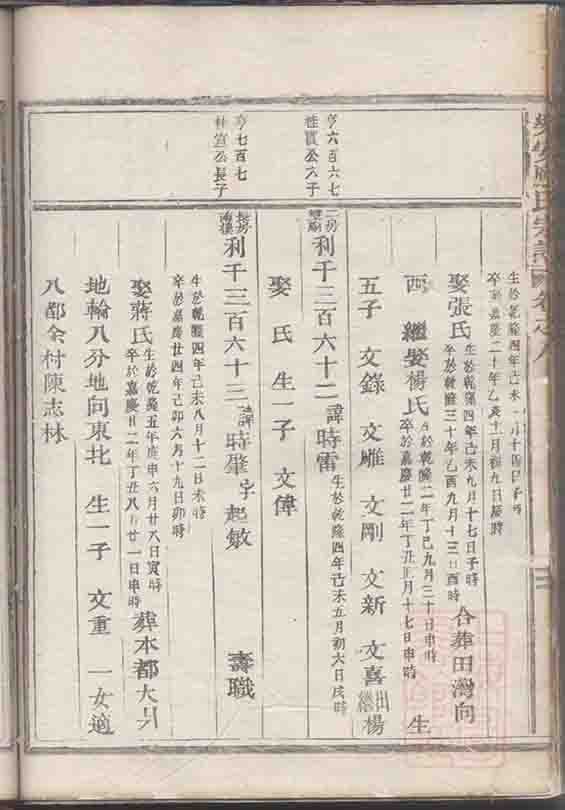 生於乾隆四年己未 月十四日子時
卒於嘉慶二十年乙亥十一月初九日辰時
娶張氏
生於乾隆四年己未九月十七日子時
卒於乾隆三十年乙酉九月十三日酉時
合葬田灣向
西 繼娶楊氏
生於乾隆二年丁巳九月三十日申時
卒於嘉慶廿二年丁丑正月十七日申時
生
五子 文錄 文雕 文剛 文新 文喜 出繼 楊
亨六百六十
桂 公六子
二房
利千三百六十二 諱 時雷
生於乾隆四年己未五月初六日戌時
娶 氏 生一子 文偉
亨七百七
桂宣公長子
長房
南溪
利千三百六十三 諱 時肇 字 起敏 壽職
生於乾隆四年己未八月十二日未時
卒於嘉慶廿四年己卯六月十九日卯時
娶蔣氏
生於乾隆五年庚申六月廿八日寅時
卒於嘉慶廿二年丁丑八月廿一日申時
葬本都大
地輪八分地向東北 生一子 文重 一女適
八都余村陳志林